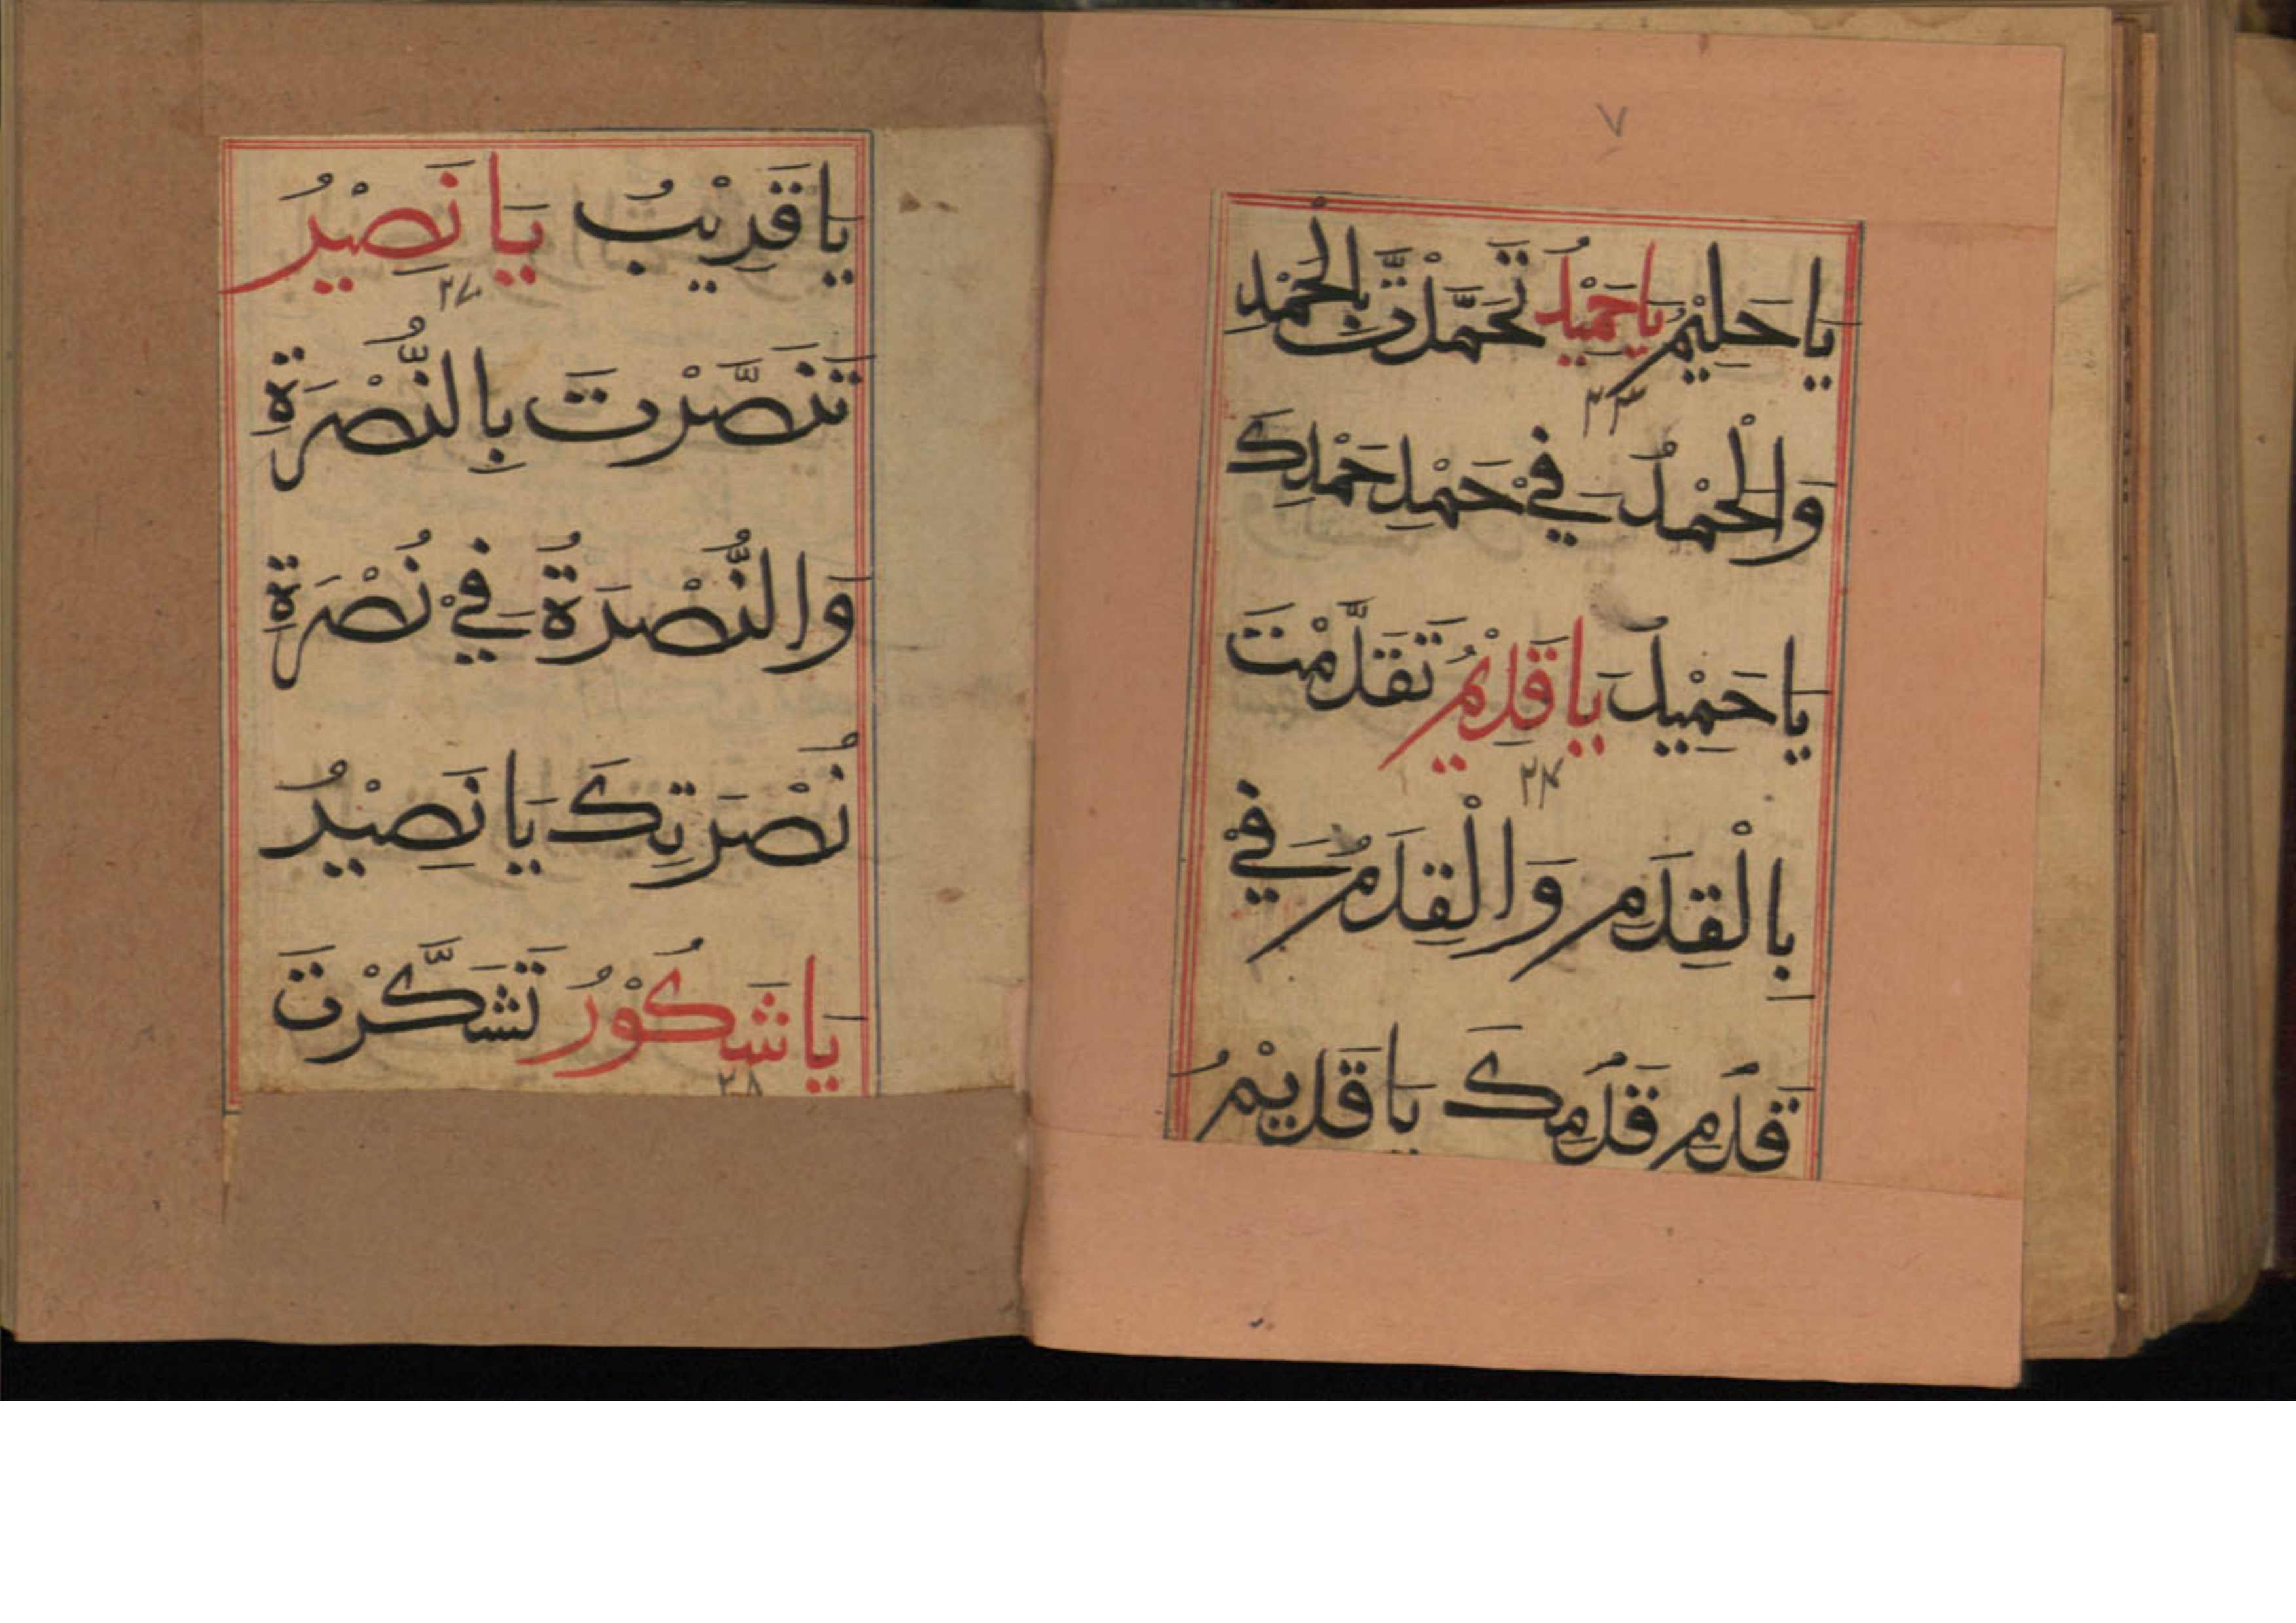 ٧
يَا حَلِيْمُ يَا حَمِيْدُ تَحَمَّدْتَ بِالْحَمْدِ
٢٣
وَالْحَمْدُ فِيْ حَمْدِ حَمْدِكَ
يَا حَمِيْدُ يَا قَدِيْمُ تَقَدَّمْتَ
٢٤
بِالْقِدَمِ وَالْقِدَمُ فِيْ
قَدَمِ قَدَمِكَ يَا قَدِيْمُ
يَا قَرِيْبُ يَا نَصِيْرُ
٢٧
تَنَصَّرْتَ بِالنُّصْرَةِ
وَالنُّصْرَةُ فِيْ نُصْرَةِ
نُصْرَتِكَ يَا نَصِيْرُ
يَا شَكُوْرُ تَشَكَّرْتَ
٢٨